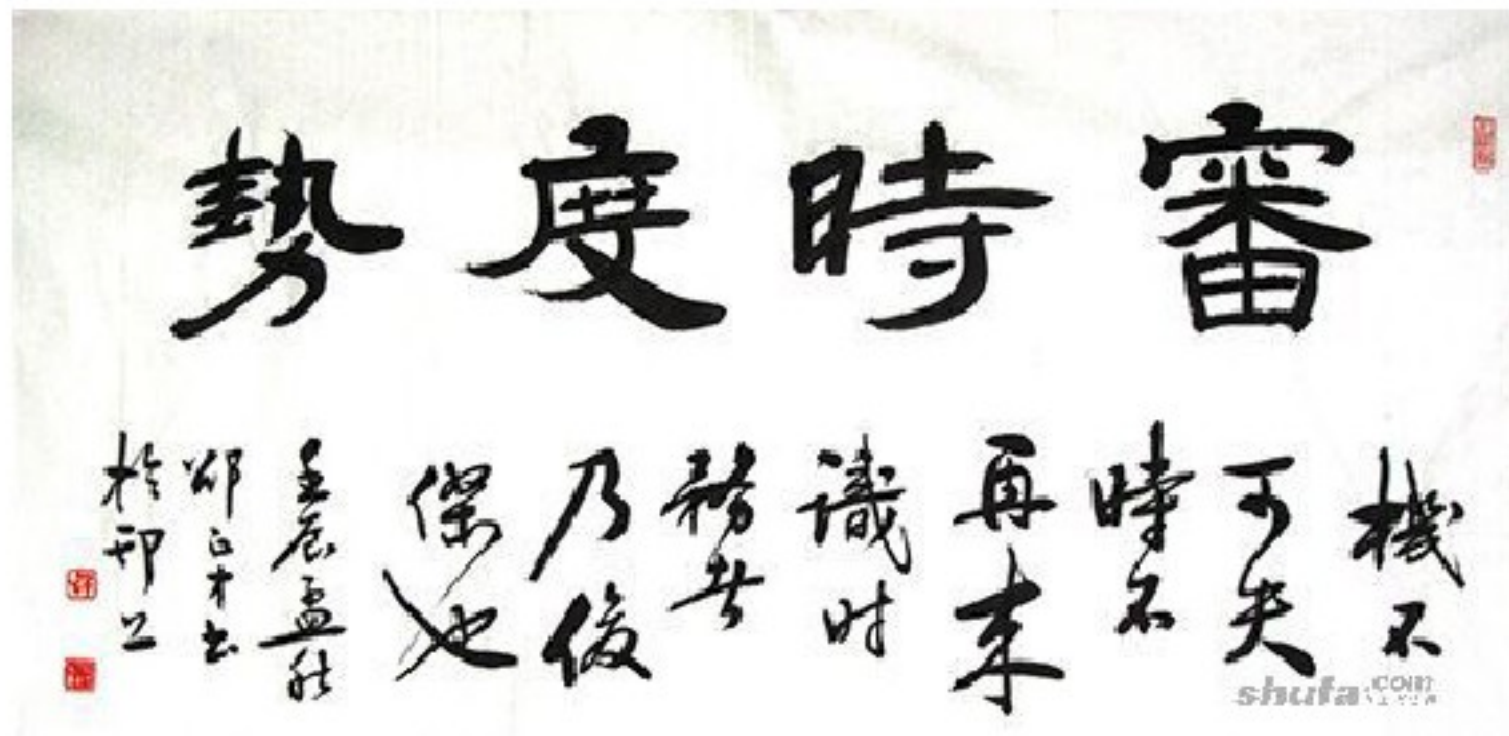 審時度勢
機不
可失
時不
再来
識时
務者
乃俊
傑也
壬辰孟秋
邵正才书
於邗上
shufa.com